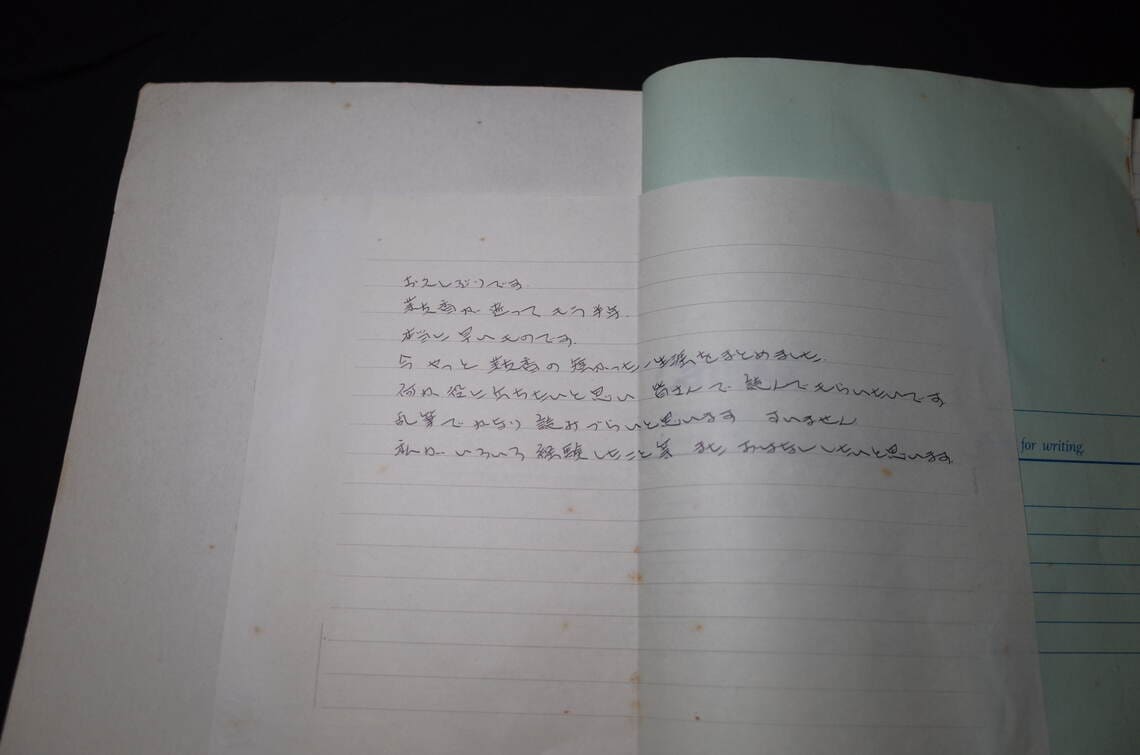 おえしぶりです
が逝って もう半年.
本当に 早いものです.
今 やっと の 短かった生涯をまとめました.
何か役に立ちたいと思い 皆さんで 読んでもらいたいです
乱筆でかなり 読みづらいと思います すいません
私が いろいろ 経験したこと等 また おはなししたいと思います.
for writing